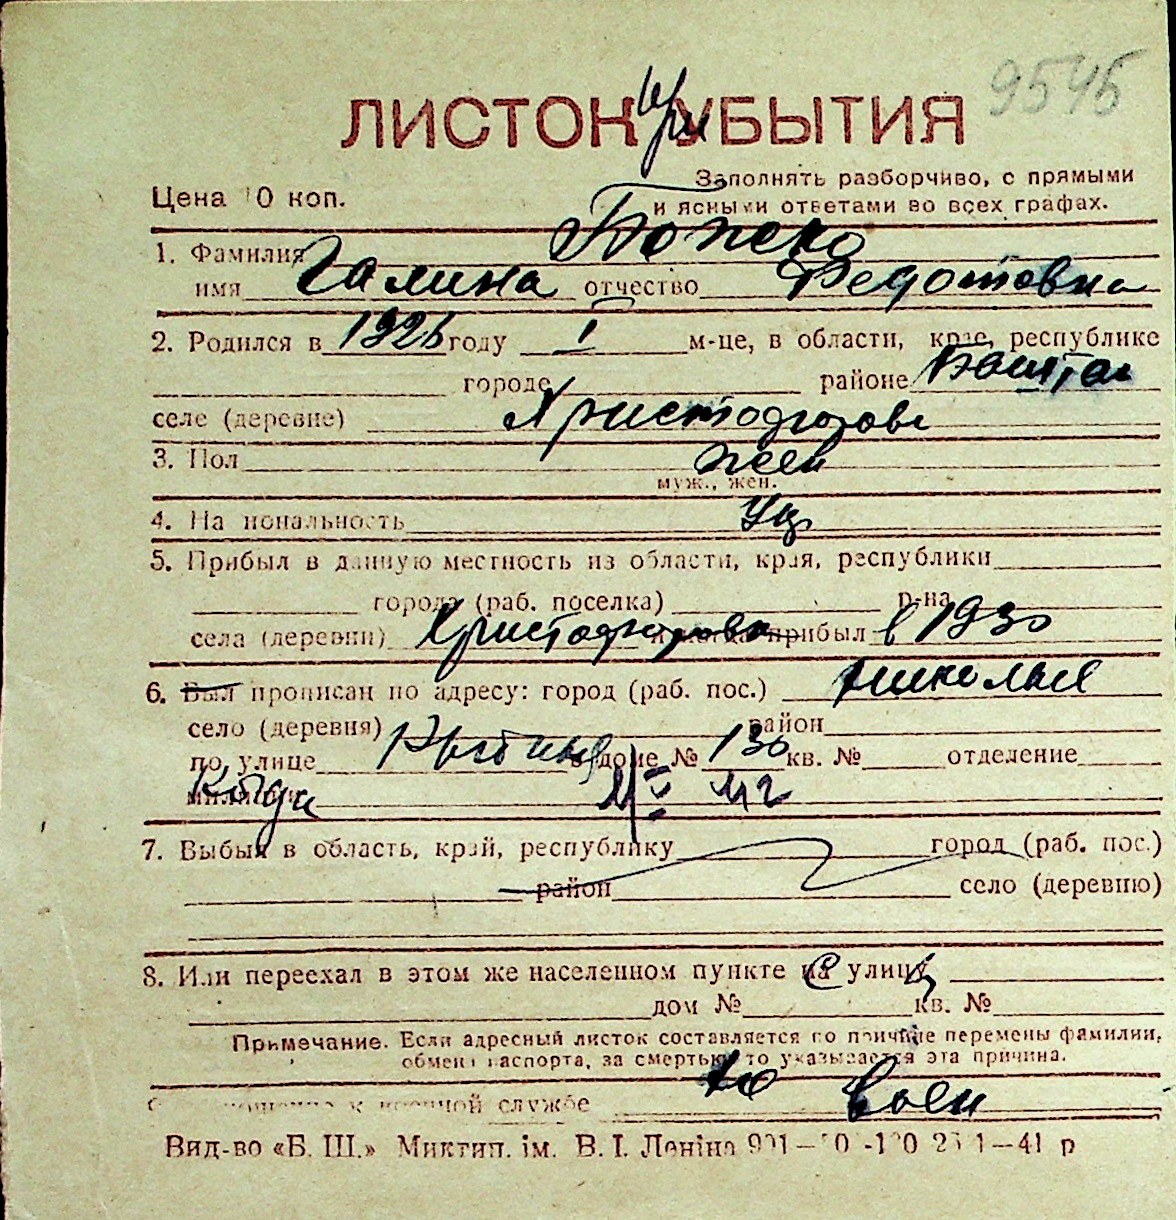 9545
ЛИСТОК УБЫТИЯ
при
Цена 10 коп.
Заполнять разборчиво, с прямыми
и ясными ответами во всех графах.
1. Фамилия Божко
имя Галина отчество Федотовна
2. Родился в 1926 году I м-це, в области, крае, республике
городе районе Баштан
селе (деревне) Христофорове
3. Пол жен
муж., жен.
4. Национальность Ук
5. Прибыл в данную местность из области, края, республики
города (раб. поселка) р-на
села (деревни) Христофоровка и когда прибыл в 1930
6. Был прописан по адресу: город (раб. пос.) Николаев
село (деревня) район
по улице в доме № 130 кв. № отделение
милиции Когда
7. Выбыл в область, край, республику город (раб. пос.)
район село (деревню)
8. Или переехал в этом же населенном пункте на улицу
дом № кв. №
Примечание. Если адресный листок составляется по причине перемены фамилии,
обмена паспорта, за смертью, то указывается эта причина.
Отношение к военной службе
Вид-во «Б. Ш.» Миктип. ім. В. І. Леніна